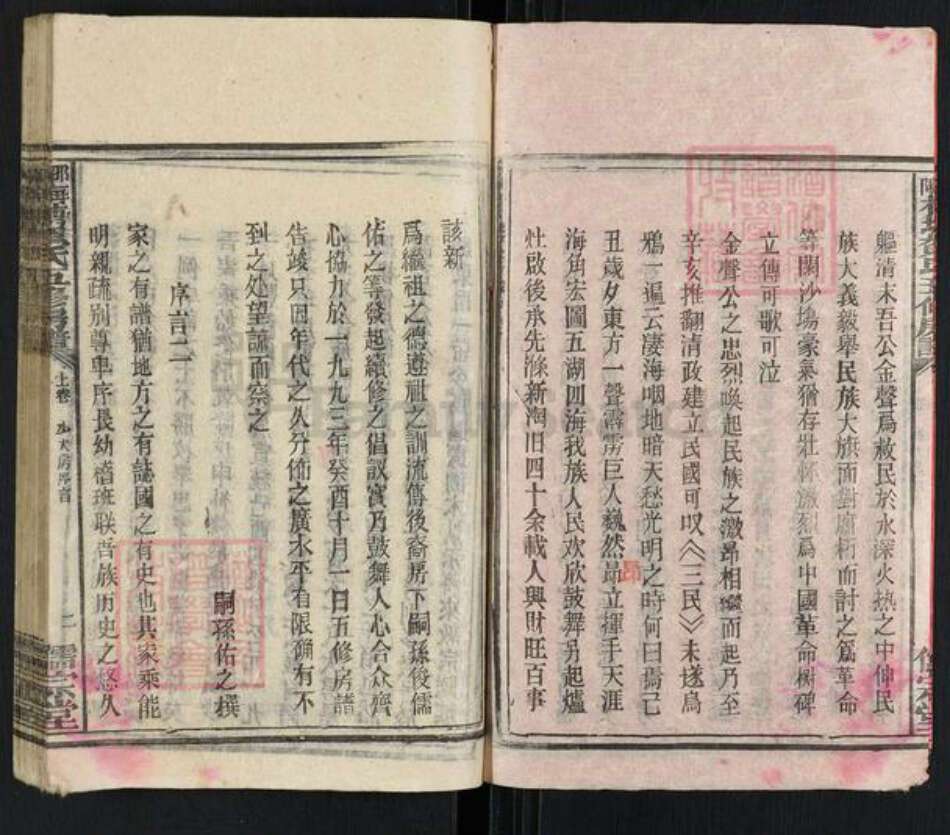 軀清末吾公金聲爲救民於水深火热之中伸民
族大義毅舉民族大旗面對廟柯而討之篇革命
等閑沙塲豪氣猶存壯怀激烈爲中國革命樹碑
立傳可歌可泣
金聲公之忠烈唤起民族之激昂相繼而起乃至
辛亥推翻清政建立民國可叹《三民》未遂烏
鴉一遍云凄海咽地暗天愁光明之時何日擣己
丑歲夕東方一聲霹雳巨人巍然昻立揮手天涯
昂
海角宏圖五湖四海我族人民欢欣鼓舞另起爐
灶啟後承先滌新淘旧四十余載人興財旺百事
該新
爲繼祖之德遵祖之訓流傳後裔房下嗣孫後儒
佑之等發起續修之倡議實乃鼓舞人心合众齊
心協力於一九九三年癸酉十月一日五修房譜
告竣只因年代之久分佈之廣水平有限𨓜有不
到之处望諒而察之
嗣孫佑之撰
序言二
家之有譜猶地方之有誌國之有史也其家乘能
明親疏別尊卑序長幼稽班联吾族历史之悠久
氏五修房譜
上卷
二
儒宗堂